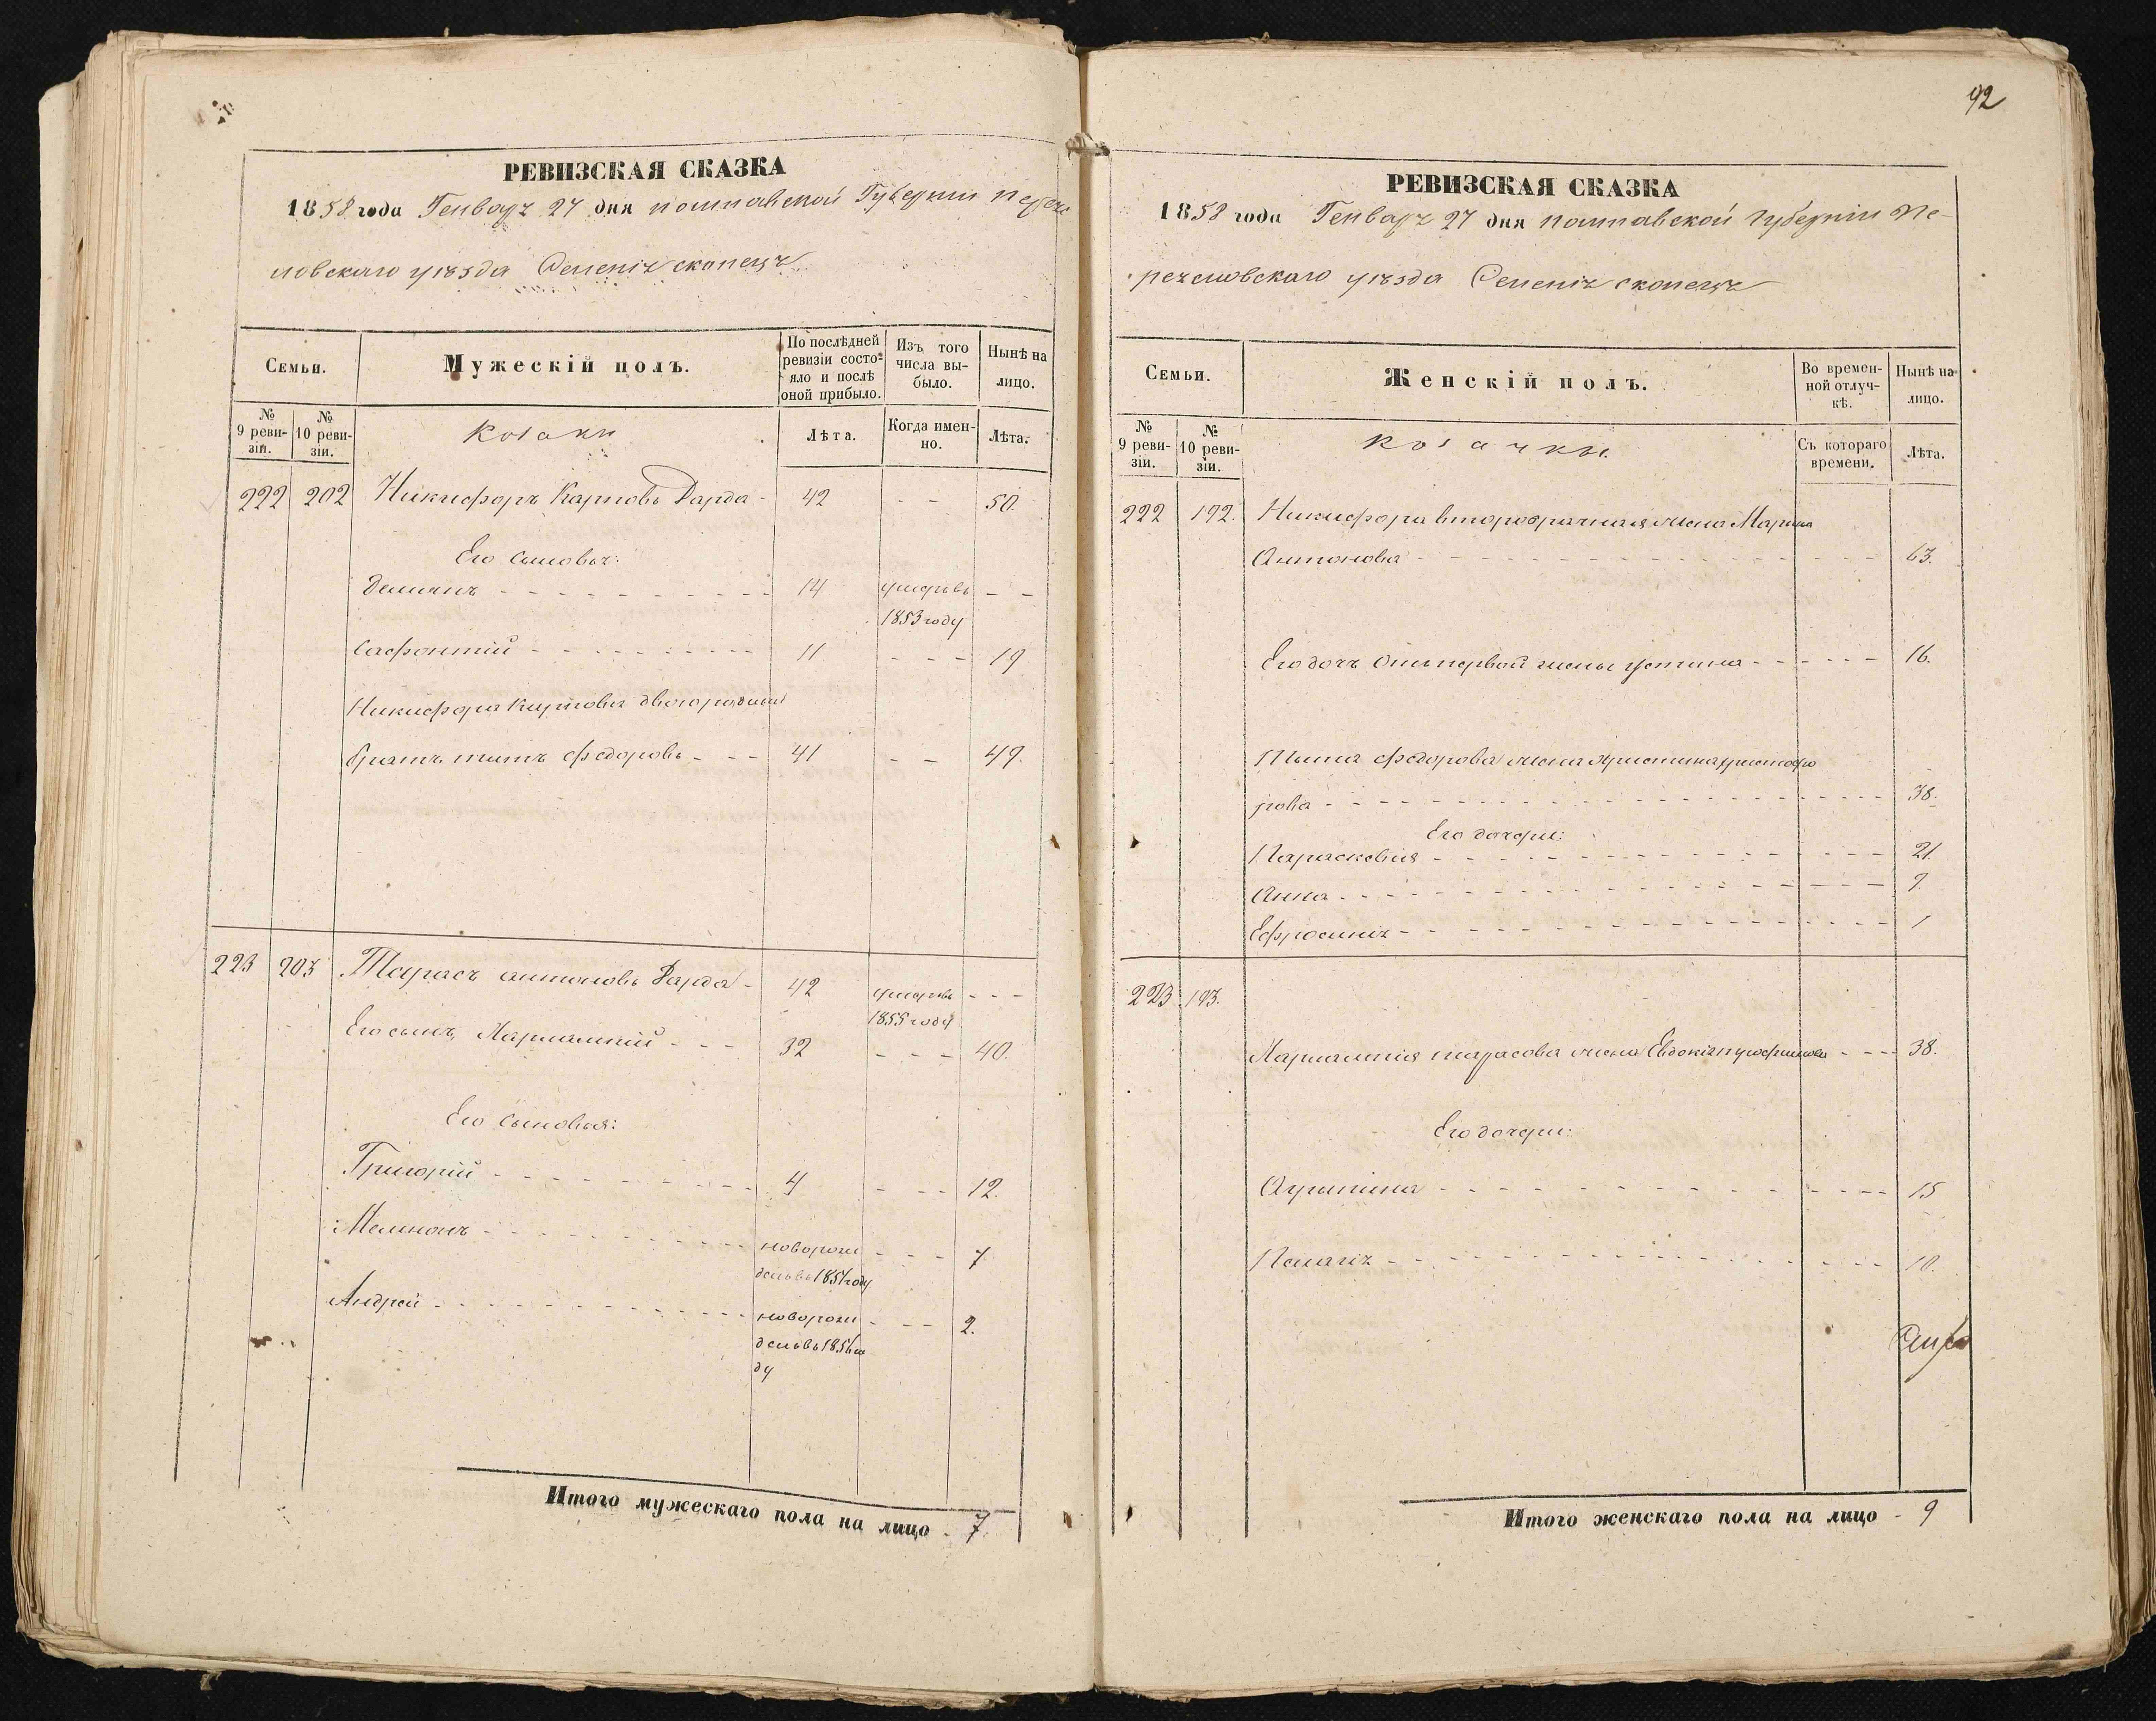 РЕВИЗСКАЯ СКАЗКА
1858 года Генваря 27 дня полтавской Губерніи Перея
словскаго уѣзда Селенія скопецъ
Семьи.
Мужескій полъ.
По послѣдней ревизіи состояло и послѣ оной прибыло.
Изъ того числа выбыло.
Нынѣ на лицо.
№ 9 ревизіи.
№ 10 ревизіи.
Козаки
Лѣта.
Когда именно.
Лѣта.
222 202 Никифоръ Карповъ Дарда - 42 - - 50.
Его сыновья:
Демянъ - - - 14 умеръ въ - -
1853 году
Сафонтій - - - 11 - - - 19
Никифора Карпова двоюродный
братъ титъ федоровъ - - - 41 - - 49.
223 203 Тарасъ антоновъ Дарда - 42 умеръ въ - - -
1855 году
Его сынъ, Харлампій - - - 32 - - - 40.
Его сыновья:
Григорій - - - 4 - - - 12.
Мемнонъ - - - новорож - - - 7.
денъ въ 1851 году
Андрей - - - новорож - - - 2.
денъ въ 1856 го
ду
Итого мужескаго пола на лицо - 7.
92
РЕВИЗСКАЯ СКАЗКА
1858 года Генваря 27 дня полтавской Губерніи Пе-
реясловскаго уѣзда Селенія скопецъ
Семьи.
Женскій полъ.
Во временной отлучкѣ.
Нынѣ на лицо.
№ 9 ревизіи.
№ 10 ревизіи.
Козачки.
Съ котораго времени.
Лѣта.
222 192. Никифора второбрачная жена Марина
Антонова - - - 63.
Его дочь отъ первой жены Устина - - - 16.
Тита федорова жена Христина христофо
рова - - - 38.
Его дочери:
Парасковія - - - 21.
Анна - - - 7.
Ефросинія - - - 1
223 193.
Харлампія тарасова жена Евдокія - - - 38.
Его дочери:
Агрипина - - - 15
Пелагія - - - 10.
Итого женскаго пола на лицо - 9